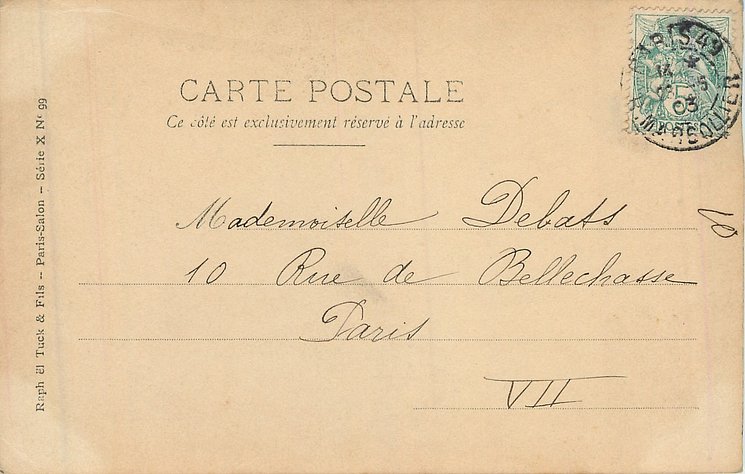 CARTE POSTALE
Ce côté est exclusivement réservé à l'adresse
PARIS 49
03
Mademoiselle Debats
10 Rue de Bellechasse
Paris
VII
10
Raph ël Tuck & Fils — Paris-Salon — Série X Nº 99